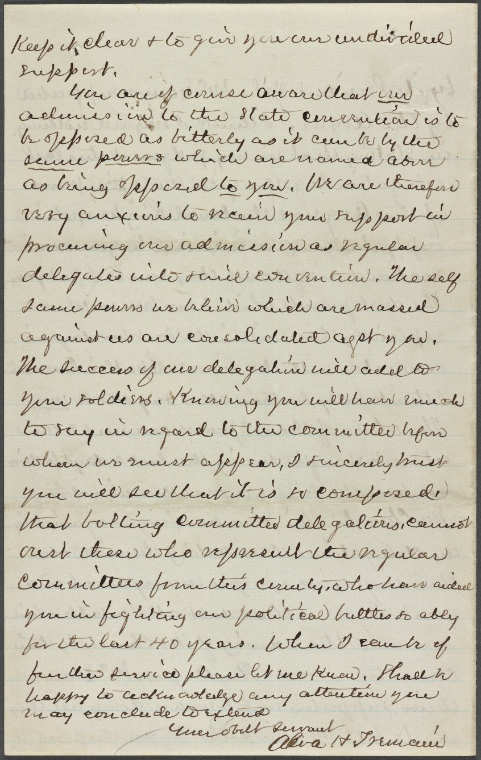 Keep it clear & to give you our undivided
support.
You are of course aware that our
admission to the State convention is to
be opposed as bitterly as it can be by the
same powers which are named above
as being opposed to you. We are therefore
very anxious to receive your support in
procuring our admission as regular
delegates into said convention. The self
same powers we believe which are massed
against us are consolidated agst you.
The success of our delegation will add to
your soldiers. Knowing you will have much
to say in regard to the committee before
whom we must appear, I sincerely trust
you will see that it is so composed,
that bolting committee delegations, cannot
oust those who represent the regular
committees from this county, who have aided
you in fighting our political battles so ably
for the last 40 years. When I can be of
further service please let me know. Shall be
happy to acknowledge any attention you
may conclude to extend
Your obdt servant
Alva H Tremain